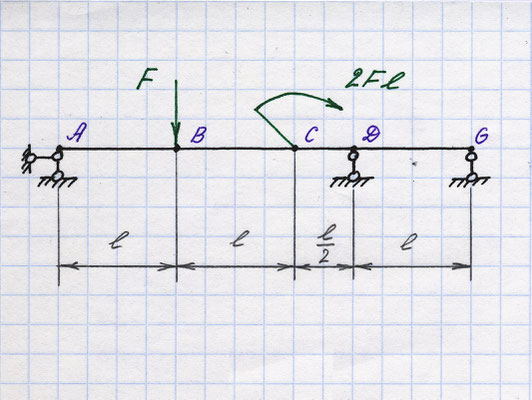 F
2Fl
A B C D G
l l l/2 l